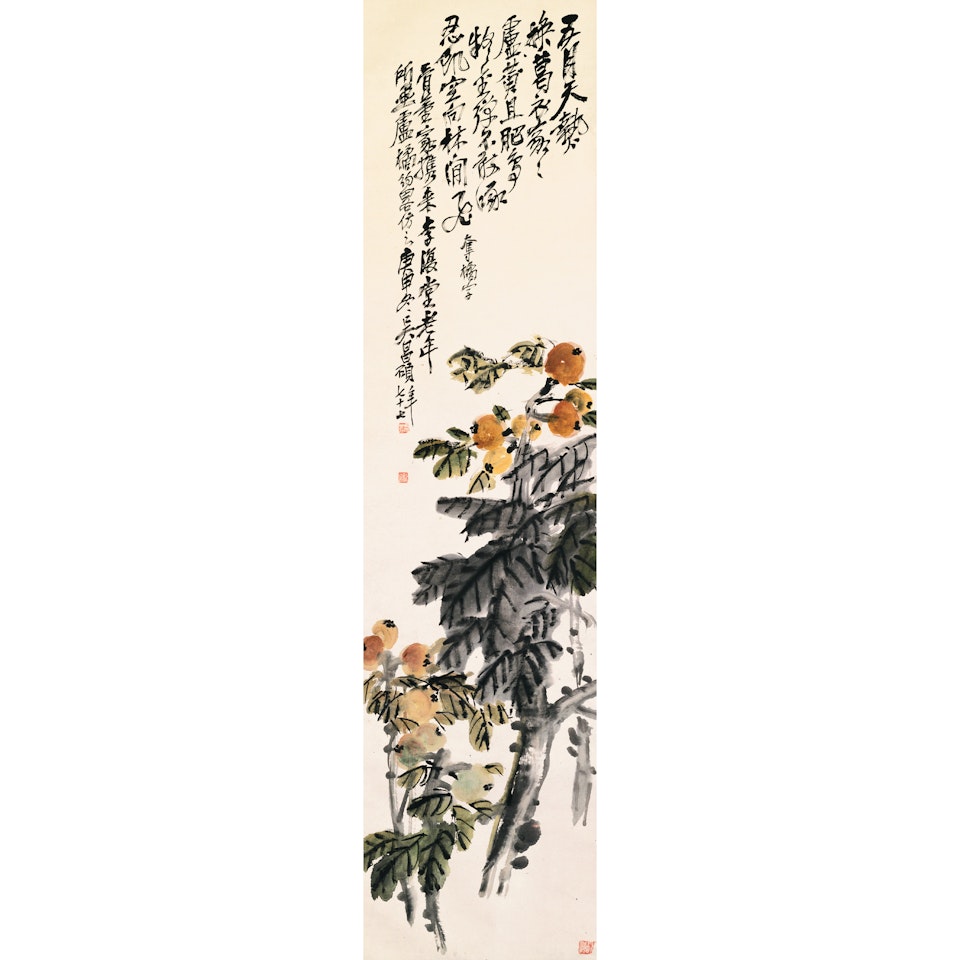 五月天熱
換葛衣家々
盧黃且肥鳥
疑金彈不敢啄
忍飢空向林間飛
奪橘字
骨董家攜來李復堂老年
所畫盧橘約略仿之庚申冬吳昌碩年七十七